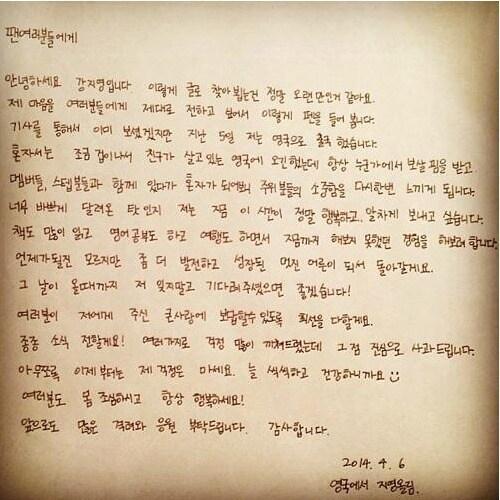 팬여러분들에게
안녕하세요 강지영입니다. 이렇게 글로 찾아뵙는건 정말 오랜만인거 같아요.
제 마음을 여러분들에게 제대로 전하고 싶어서 이렇게 펜을 들어 봅니다.
기사를 통해서 이미 보셨겠지만 지난 5일 저는 영국으로 출국 했습니다.
혼자서는 조금 겁이나서 친구가 살고 있는 영국에 오긴했는데 항상 누군가에서 보살핌을 받고.
멤버들, 스텝분들과 함께 있다가 혼자가 되어보니 주위분들의 소중함을 다시한번 느끼게 됩니다.
너무 바쁘게 달려온 탓인지 저는 지금 이 시간이 정말 행복하고, 알차게 보내고 싶습니다.
책도 많이 읽고 영어공부도 하고 여행도 하면서 지금까지 해보지 못했던 경험을 해보려 합니다.
언제가 될진 모르지만 좀 더 발전하고 성장된 멋진 어른이 되서 돌아갈게요.
그 날이 올때까지 저 잊지말고 기다려주셨으면 좋겠습니다!
여러분이 저에게 주신 큰사랑에 보답할수 있도록 최선을 다할게요.
종종 소식 전할게요! 여러가지로 걱정 많이 끼쳐드렸는데 그 점 진심으로 사과드립니다.
아무쪼록 이제부터는 제 걱정은 마세요. 늘 씩씩하고 건강하니까요
여러분도 몸 조심하시고 항상 행복하세요!
앞으로도 많은 격려와 응원 부탁드립니다. 감사합니다.
2014. 4. 6
영국에서 지영올림.